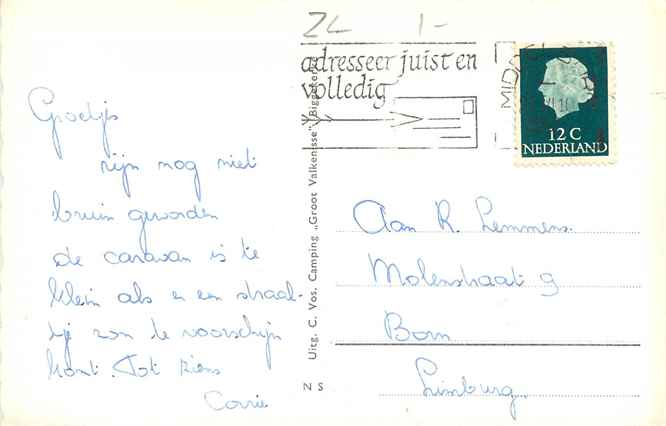 ZL 1-
adresseer juist en
volledig
MIDDEL
12 C
NEDERLAND
Groetjes
zijn nog niet
bruin geworden
de caravan is te
klein als er een straal-
tje zon te voorschijn
komt. Tot ziens
Corrie
Uitg. C. Vos. Camping „Groot Valkenisse" Biggekerke
N S
Aan R. Lemmens.
Molenstraat 9
Born
Limburg.